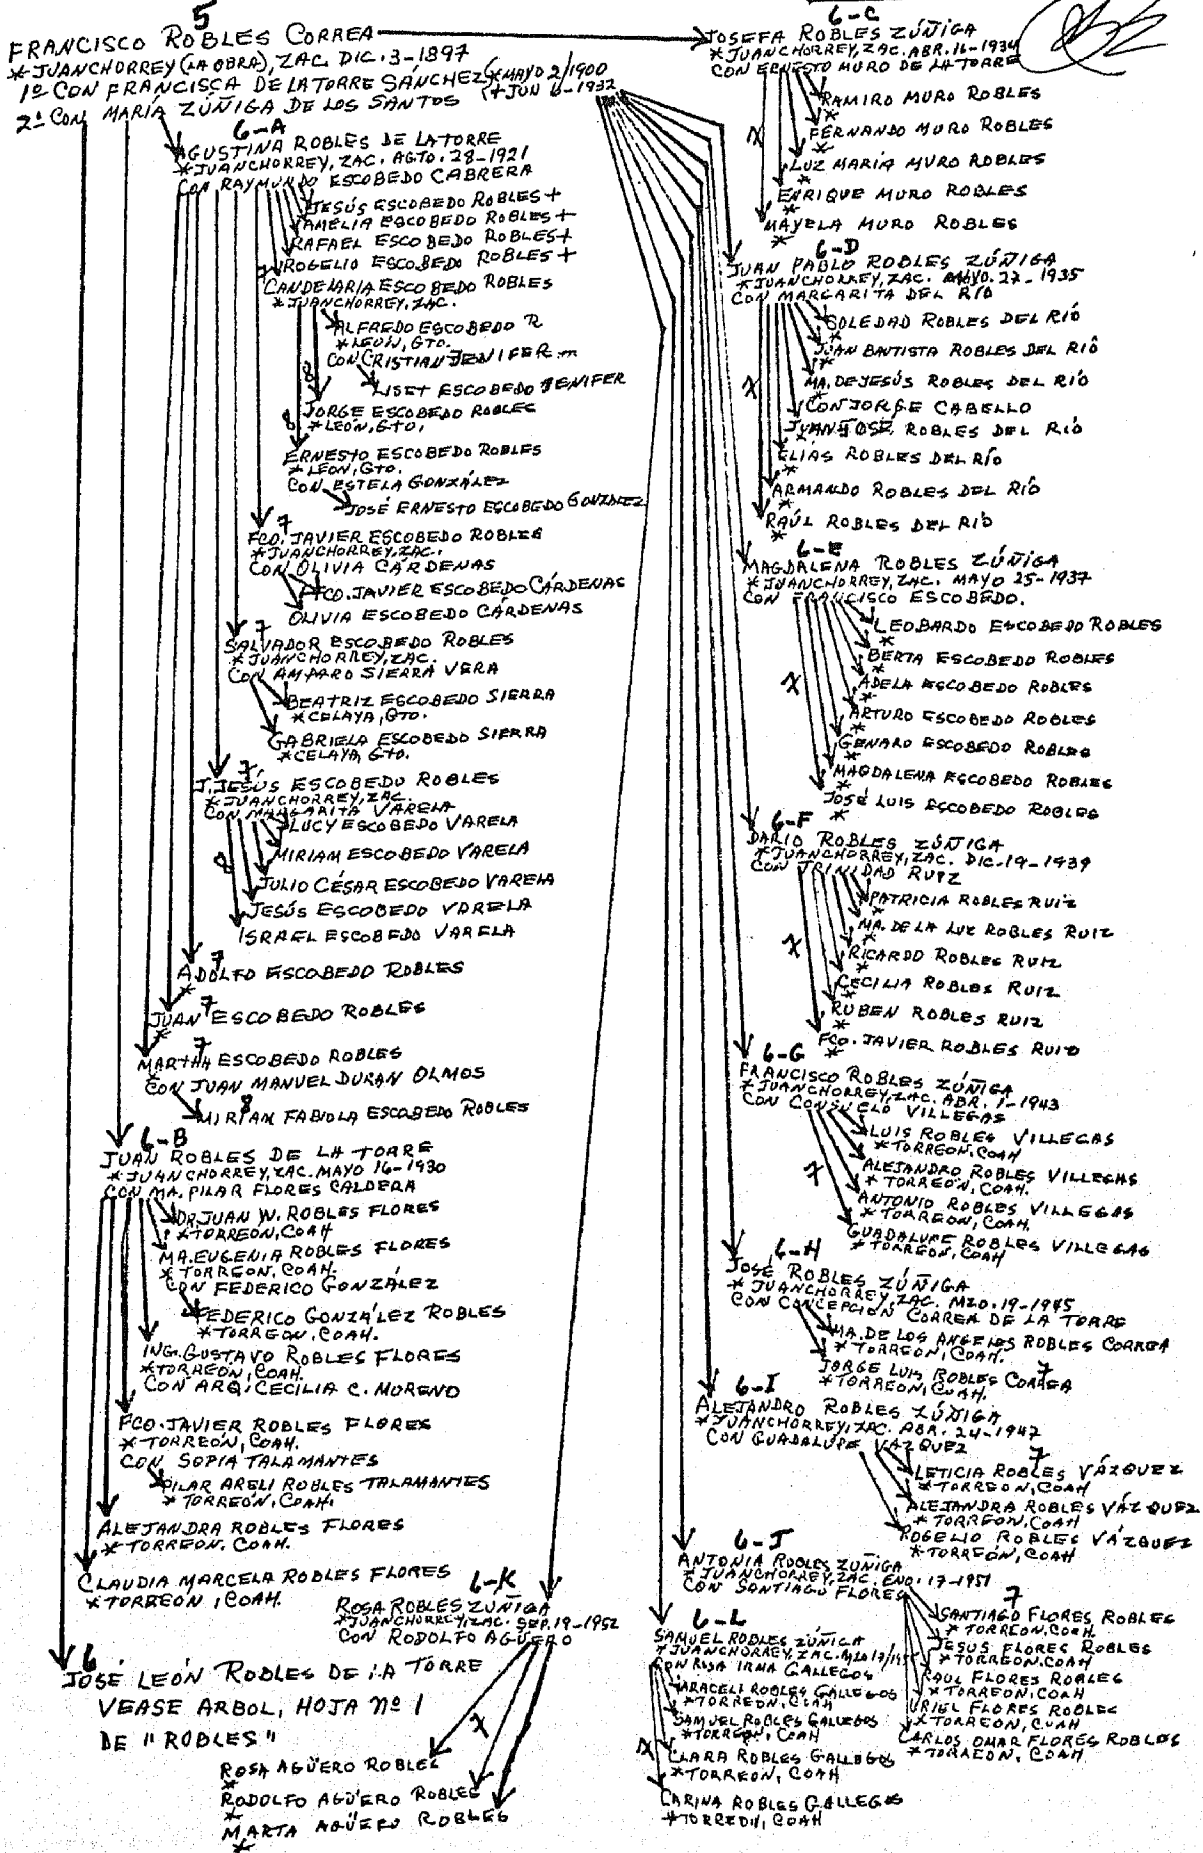 5
FRANCISCO ROBLES CORREA
*JUANCHORREY (LA OBRA), ZAC DIC. 3-1897
1º CON FRANCISCA DE LA TORRE SÁNCHEZ (*MAYO 2/1900
(+JUN 6-1932
2º CON MARÍA ZÚÑIGA DE LOS SANTOS
6-A
AGUSTINA ROBLES DE LA TORRE
*JUANCHORREY, ZAC. AGTO. 28-1921
CON RAYMUNDO ESCOBEDO CABRERA
JESÚS ESCOBEDO ROBLES +
AMELIA ESCOBEDO ROBLES +
RAFAEL ESCOBEDO ROBLES +
ROGELIO ESCOBEDO ROBLES +
7
CANDELARIA ESCOBEDO ROBLES
*JUANCHORREY, ZAC.
ALFREDO ESCOBEDO R
*LEÓN, GTO.
CON CRISTIAN JENIFER
8
LISET ESCOBEDO JENIFER
JORGE ESCOBEDO ROBLES
*LEÓN, GTO,
8
ERNESTO ESCOBEDO ROBLES
*LEÓN, GTO.
CON ESTELA GONZÁLEZ
JOSÉ ERNESTO ESCOBEDO GONZÁLEZ
7
FCO. JAVIER ESCOBEDO ROBLES
*JUANCHORREY, ZAC.
CON OLIVIA CÁRDENAS
FCO. JAVIER ESCOBEDO CÁRDENAS
OLIVIA ESCOBEDO CÁRDENAS
7
SALVADOR ESCOBEDO ROBLES
*JUANCHORREY, ZAC.
CON AMPARO SIERRA VERA
BEATRIZ ESCOBEDO SIERRA
*CELAYA, GTO.
GABRIELA ESCOBEDO SIERRA
*CELAYA, GTO.
7
J. JESÚS ESCOBEDO ROBLES
*JUANCHORREY, ZAC.
CON MARGARITA VARELA
LUCY ESCOBEDO VARELA
8
MIRIAM ESCOBEDO VARELA
JULIO CÉSAR ESCOBEDO VARELA
JESÚS ESCOBEDO VARELA
ISRAEL ESCOBEDO VARELA
7
ADOLFO ESCOBEDO ROBLES
*
7
JUAN ESCOBEDO ROBLES
*
7
MARTHA ESCOBEDO ROBLES
CON JUAN MANUEL DURAN OLMOS
8
MIRIAN FABIOLA ESCOBEDO ROBLES
6-B
JUAN ROBLES DE LA TORRE
*JUANCHORREY, ZAC. MAYO 16-1930
CON MA. PILAR FLORES CALDERA
DR. JUAN W. ROBLES FLORES
*TORREÓN, COAH
MA. EUGENIA ROBLES FLORES
*TORREÓN, COAH.
CON FEDERICO GONZÁLEZ
FEDERICO GONZÁLEZ ROBLES
*TORREÓN, COAH.
ING. GUSTAVO ROBLES FLORES
*TORREÓN, COAH.
CON ARQ. CECILIA C. MORENO
FCO. JAVIER ROBLES FLORES
*TORREÓN, COAH.
CON SOFIA TALAMANTES
PILAR ARELI ROBLES TALAMANTES
*TORREÓN, COAH.
ALEJANDRA ROBLES FLORES
*TORREÓN, COAH.
CLAUDIA MARCELA ROBLES FLORES
*TORREÓN, COAH.
6-K
ROSA ROBLES ZÚÑIGA
*JUANCHORREY, ZAC. SEP. 19-1952
CON RODOLFO AGÜERO
6
JOSÉ LEÓN ROBLES DE LA TORRE
VEASE ARBOL, HOJA Nº 1
DE "ROBLES"
7
ROSA AGÜERO ROBLES
*
RODOLFO AGÜERO ROBLES
*
MARTA AGÜERO ROBLES
*
6-C
JOSEFA ROBLES ZÚÑIGA
*JUANCHORREY, ZAC. ABR. 16-1934
CON ERNESTO MURO DE LA TORRE
RAMIRO MURO ROBLES
*
7
FERNANDO MURO ROBLES
*
LUZ MARÍA MURO ROBLES
*
ENRIQUE MURO ROBLES
*
MAYELA MURO ROBLES
*
6-D
JUAN PABLO ROBLES ZÚÑIGA
*JUANCHORREY, ZAC. MAYO. 27-1935
CON MARGARITA DEL RÍO
SOLEDAD ROBLES DEL RIÓ
*
JUAN BAUTISTA ROBLES DEL RIÓ
*
7
MA. DE JESÚS ROBLES DEL RÍO
CON JORGE CABELLO
JUAN JOSÉ ROBLES DEL RIÓ
ELÍAS ROBLES DEL RÍO
*
ARMANDO ROBLES DEL RÍO
*
RAÚL ROBLES DEL RIÓ
*
6-E
MAGDALENA ROBLES ZÚÑIGA
*JUANCHORREY, ZAC. MAYO 25-1937
CON FRANCISCO ESCOBEDO.
LEOBARDO ESCOBEDO ROBLES
*
BERTA ESCOBEDO ROBLES
*
7
ADELA ESCOBEDO ROBLES
*
ARTURO ESCOBEDO ROBLES
*
GENARO ESCOBEDO ROBLES
*
MAGDALENA ESCOBEDO ROBLES
*
JOSÉ LUIS ESCOBEDO ROBLES
*
6-F
DARIO ROBLES ZÚÑIGA
*JUANCHORREY, ZAC. DIC-19-1939
CON TRINIDAD RUIZ
PATRICIA ROBLES RUIZ
*
MA. DE LA LUZ ROBLES RUIZ
*
7
RICARDO ROBLES RUIZ
*
CECILIA ROBLES RUIZ
*
RUBEN ROBLES RUIZ
*
FCO. JAVIER ROBLES RUIZ
*
6-G
FRANCISCO ROBLES ZÚÑIGA
*JUANCHORREY, ZAC. ABR. 1-1943
CON CONSUELO VILLEGAS
LUIS ROBLES VILLEGAS
*TORREÓN, COAH
7
ALEJANDRO ROBLES VILLEGAS
*TORREÓN, COAH.
ANTONIO ROBLES VILLEGAS
*TORREÓN, COAH.
GUADALUPE ROBLES VILLEGAS
*TORREÓN, COAH
6-H
JOSÉ ROBLES ZÚÑIGA
*JUANCHORREY, ZAC. MZO. 19-1945
CON CONCEPCIÓN CORREA DE LA TORRE
MA. DE LOS ANGELES ROBLES CORREA
*TORREÓN, COAH.
7
JORGE LUIS ROBLES CORREA
*TORREÓN, COAH.
6-I
ALEJANDRO ROBLES ZÚÑIGA
*JUANCHORREY, ZAC. ABR. 24-1947
CON GUADALUPE VÁZQUEZ
7
LETICIA ROBLES VÁZQUEZ
*TORREÓN, COAH
ALEJANDRA ROBLES VÁZQUEZ
*TORREÓN, COAH
ROGELIO ROBLES VÁZQUEZ
*TORREÓN, COAH
6-J
ANTONIA ROBLES ZÚÑIGA
*JUANCHORREY, ZAC. ENO. 17-1951
CON SANTIAGO FLORES
7
SANTIAGO FLORES ROBLES
*TORREÓN, COAH
JESUS FLORES ROBLES
*TORREÓN, COAH
RAUL FLORES ROBLES
*TORREÓN, COAH
URIEL FLORES ROBLES
*TORREÓN, COAH
CARLOS OMAR FLORES ROBLES
*TORREÓN, COAH
6-L
SAMUEL ROBLES ZÚÑIGA
*JUANCHORREY, ZAC. MZO
CON ROSA IRMA GALLEGOS
ARACELI ROBLES GALLEGOS
*TORREÓN, COAH
SAMUEL ROBLES GALLEGOS
*TORREÓN, COAH
7
CLARA ROBLES GALLEGOS
*TORREÓN, COAH
CARINA ROBLES GALLEGOS
*TORREÓN, COAH